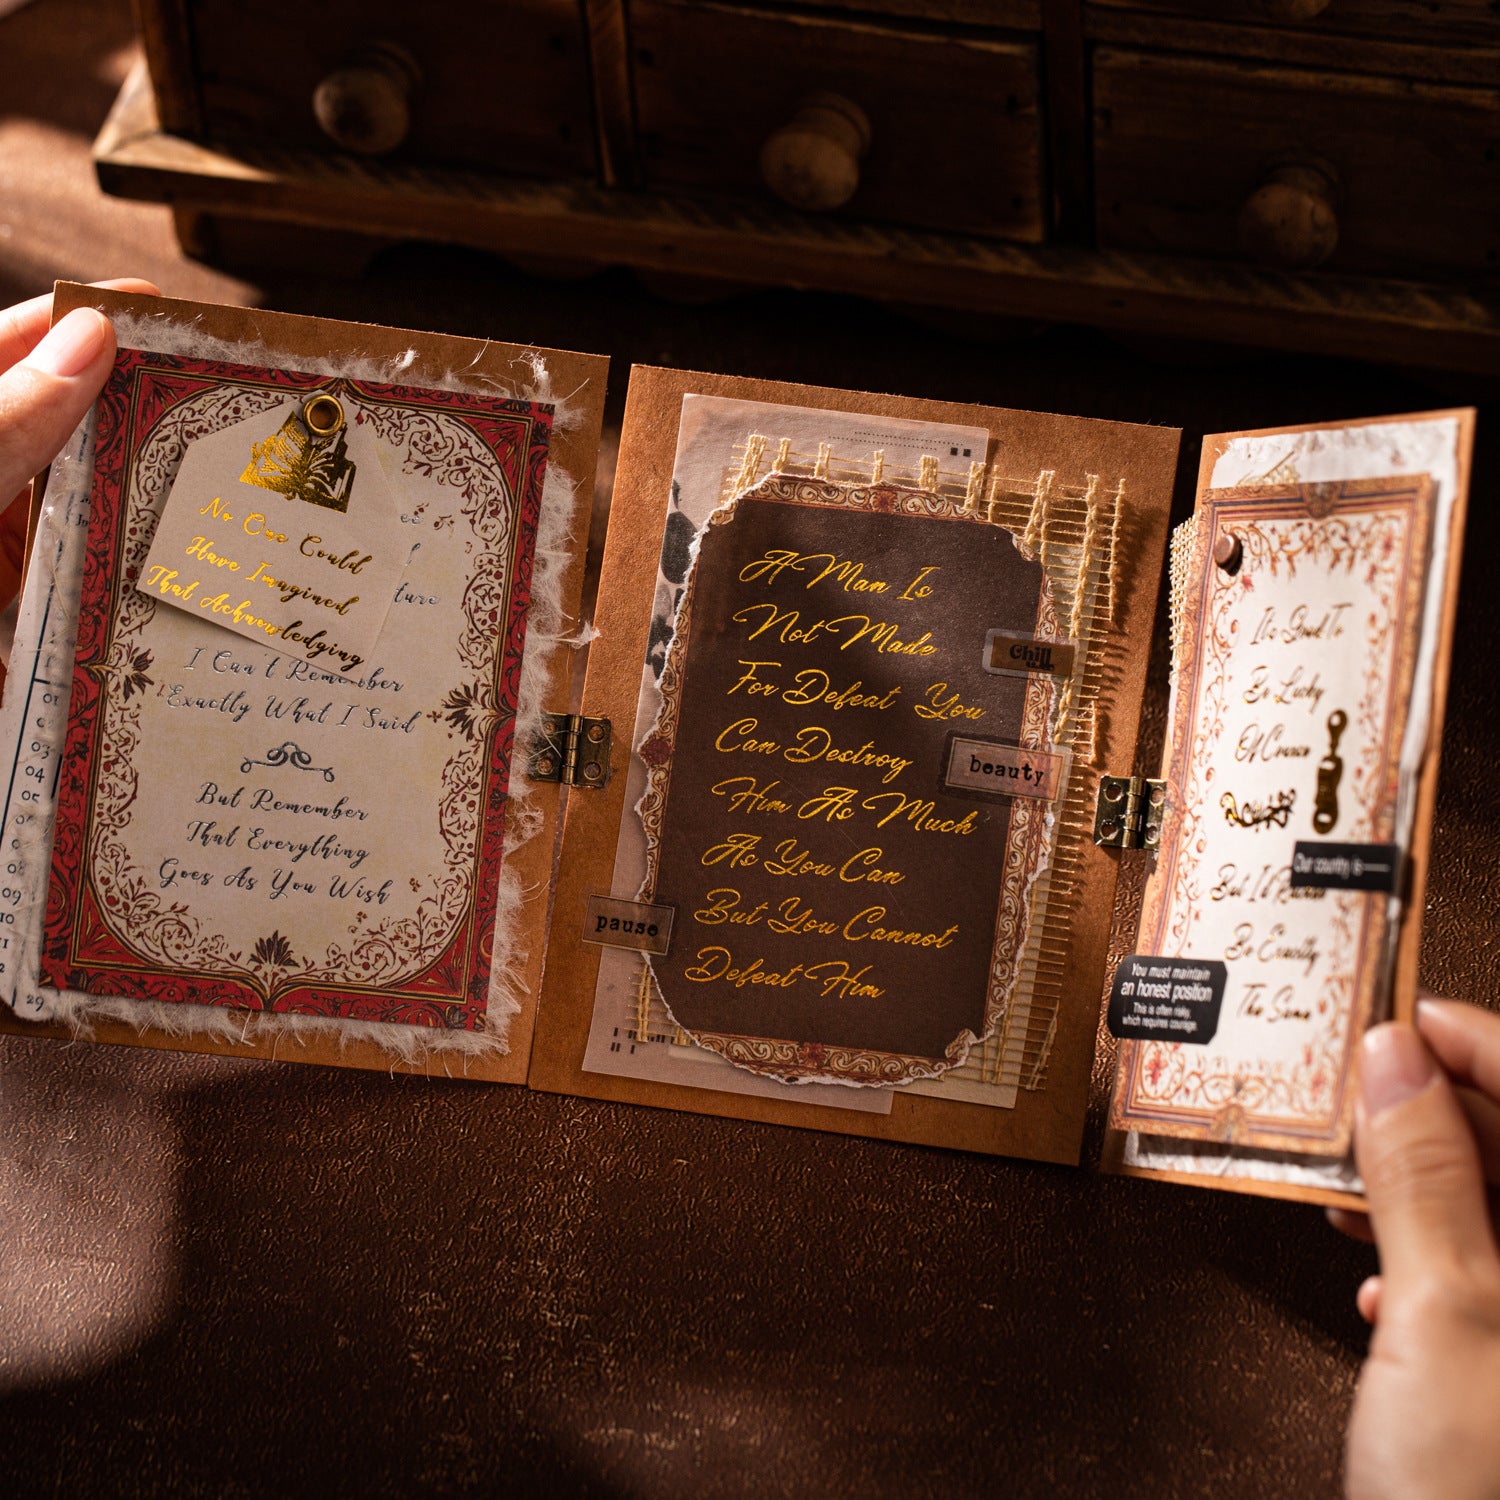 No One Could
Have Imagined
That Acknowledging
ture
I Can't Remember
Exactly What I Said
But Remember
That Everything
Goes As You Wish
03
04
05
08
09
10
11
29
A Man Is
Not Made
For Defeat You
Can Destroy
Him As Much
As You Can
But You Cannot
Defeat Him
Chill
beauty
pause
It's Good To
Be Lucky
Of Course
But I'd Rather
Be Exactly
The Same
Our country is
You must maintain
an honest position
This is often risky,
which requires courage.